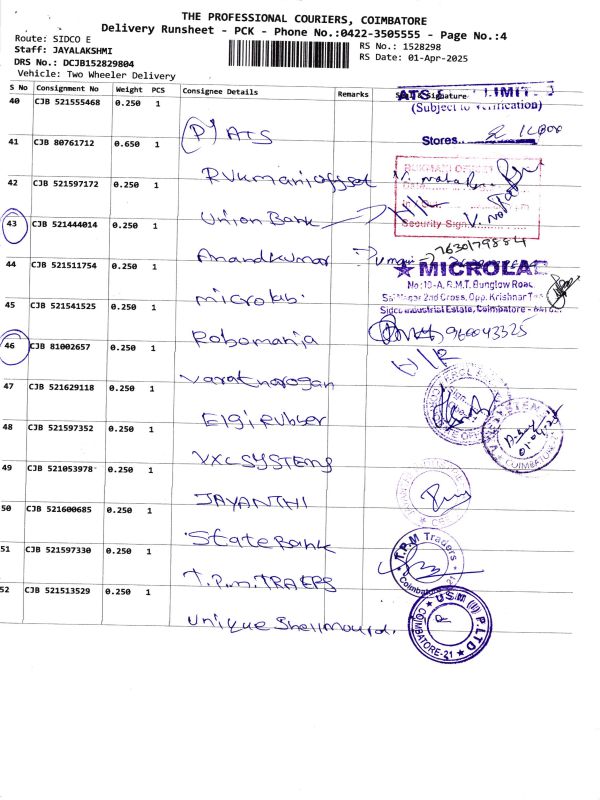 THE PROFESSIONAL COURIERS, COIMBATORE
Delivery Runsheet - PCK - Phone No.:0422-3505555 - Page No.:4
Route: SIDCO E
RS No.: 1528298
Staff: JAYALAKSHMI
RS Date: 01-Apr-2025
DRS No.: DCJB152829804
Vehicle: Two Wheeler Delivery
S No Consignment No Weight PCS Consignee Details Remarks
40 CJB 521555468 0.250 1 P) ATS
ATS LIMITED
(Subject to Verification)
Stores..
41 CJB 80761712 0.650 1 RVKmani offset
Security Sign
42 CJB 521597172 0.250 1 Union Bank
43 CJB 521444014 0.250 1 Anandkumar
7630179884
44 CJB 521511754 0.250 1 microlab.
★ MICROLAB
No:10-A, R.M.T. Bunglow Road,
Sai Nagar 2nd Cross, Opp. Krishnar
Sidco Industrial Estate, Coimbatore -
45 CJB 521541525 0.250 1 Robomania
960043325
46 CJB 81002657 0.250 1 Varatnarogan
47 CJB 521629118 0.250 1 Elgi Rubber
48 CJB 521597352 0.250 1 VXL SYSTEMS
COIMBATORE
49 CJB 521053978 0.250 1 JAYANTHI
50 CJB 521600685 0.250 1 State Bank
51 CJB 521597330 0.250 1 T.P.M. TRAERS
T.P.M Traders
Coimbatore - 21
52 CJB 521513529 0.250 1 Unique Shellmould.
U.S.M. (I) P.LTD
COIMBATORE-21